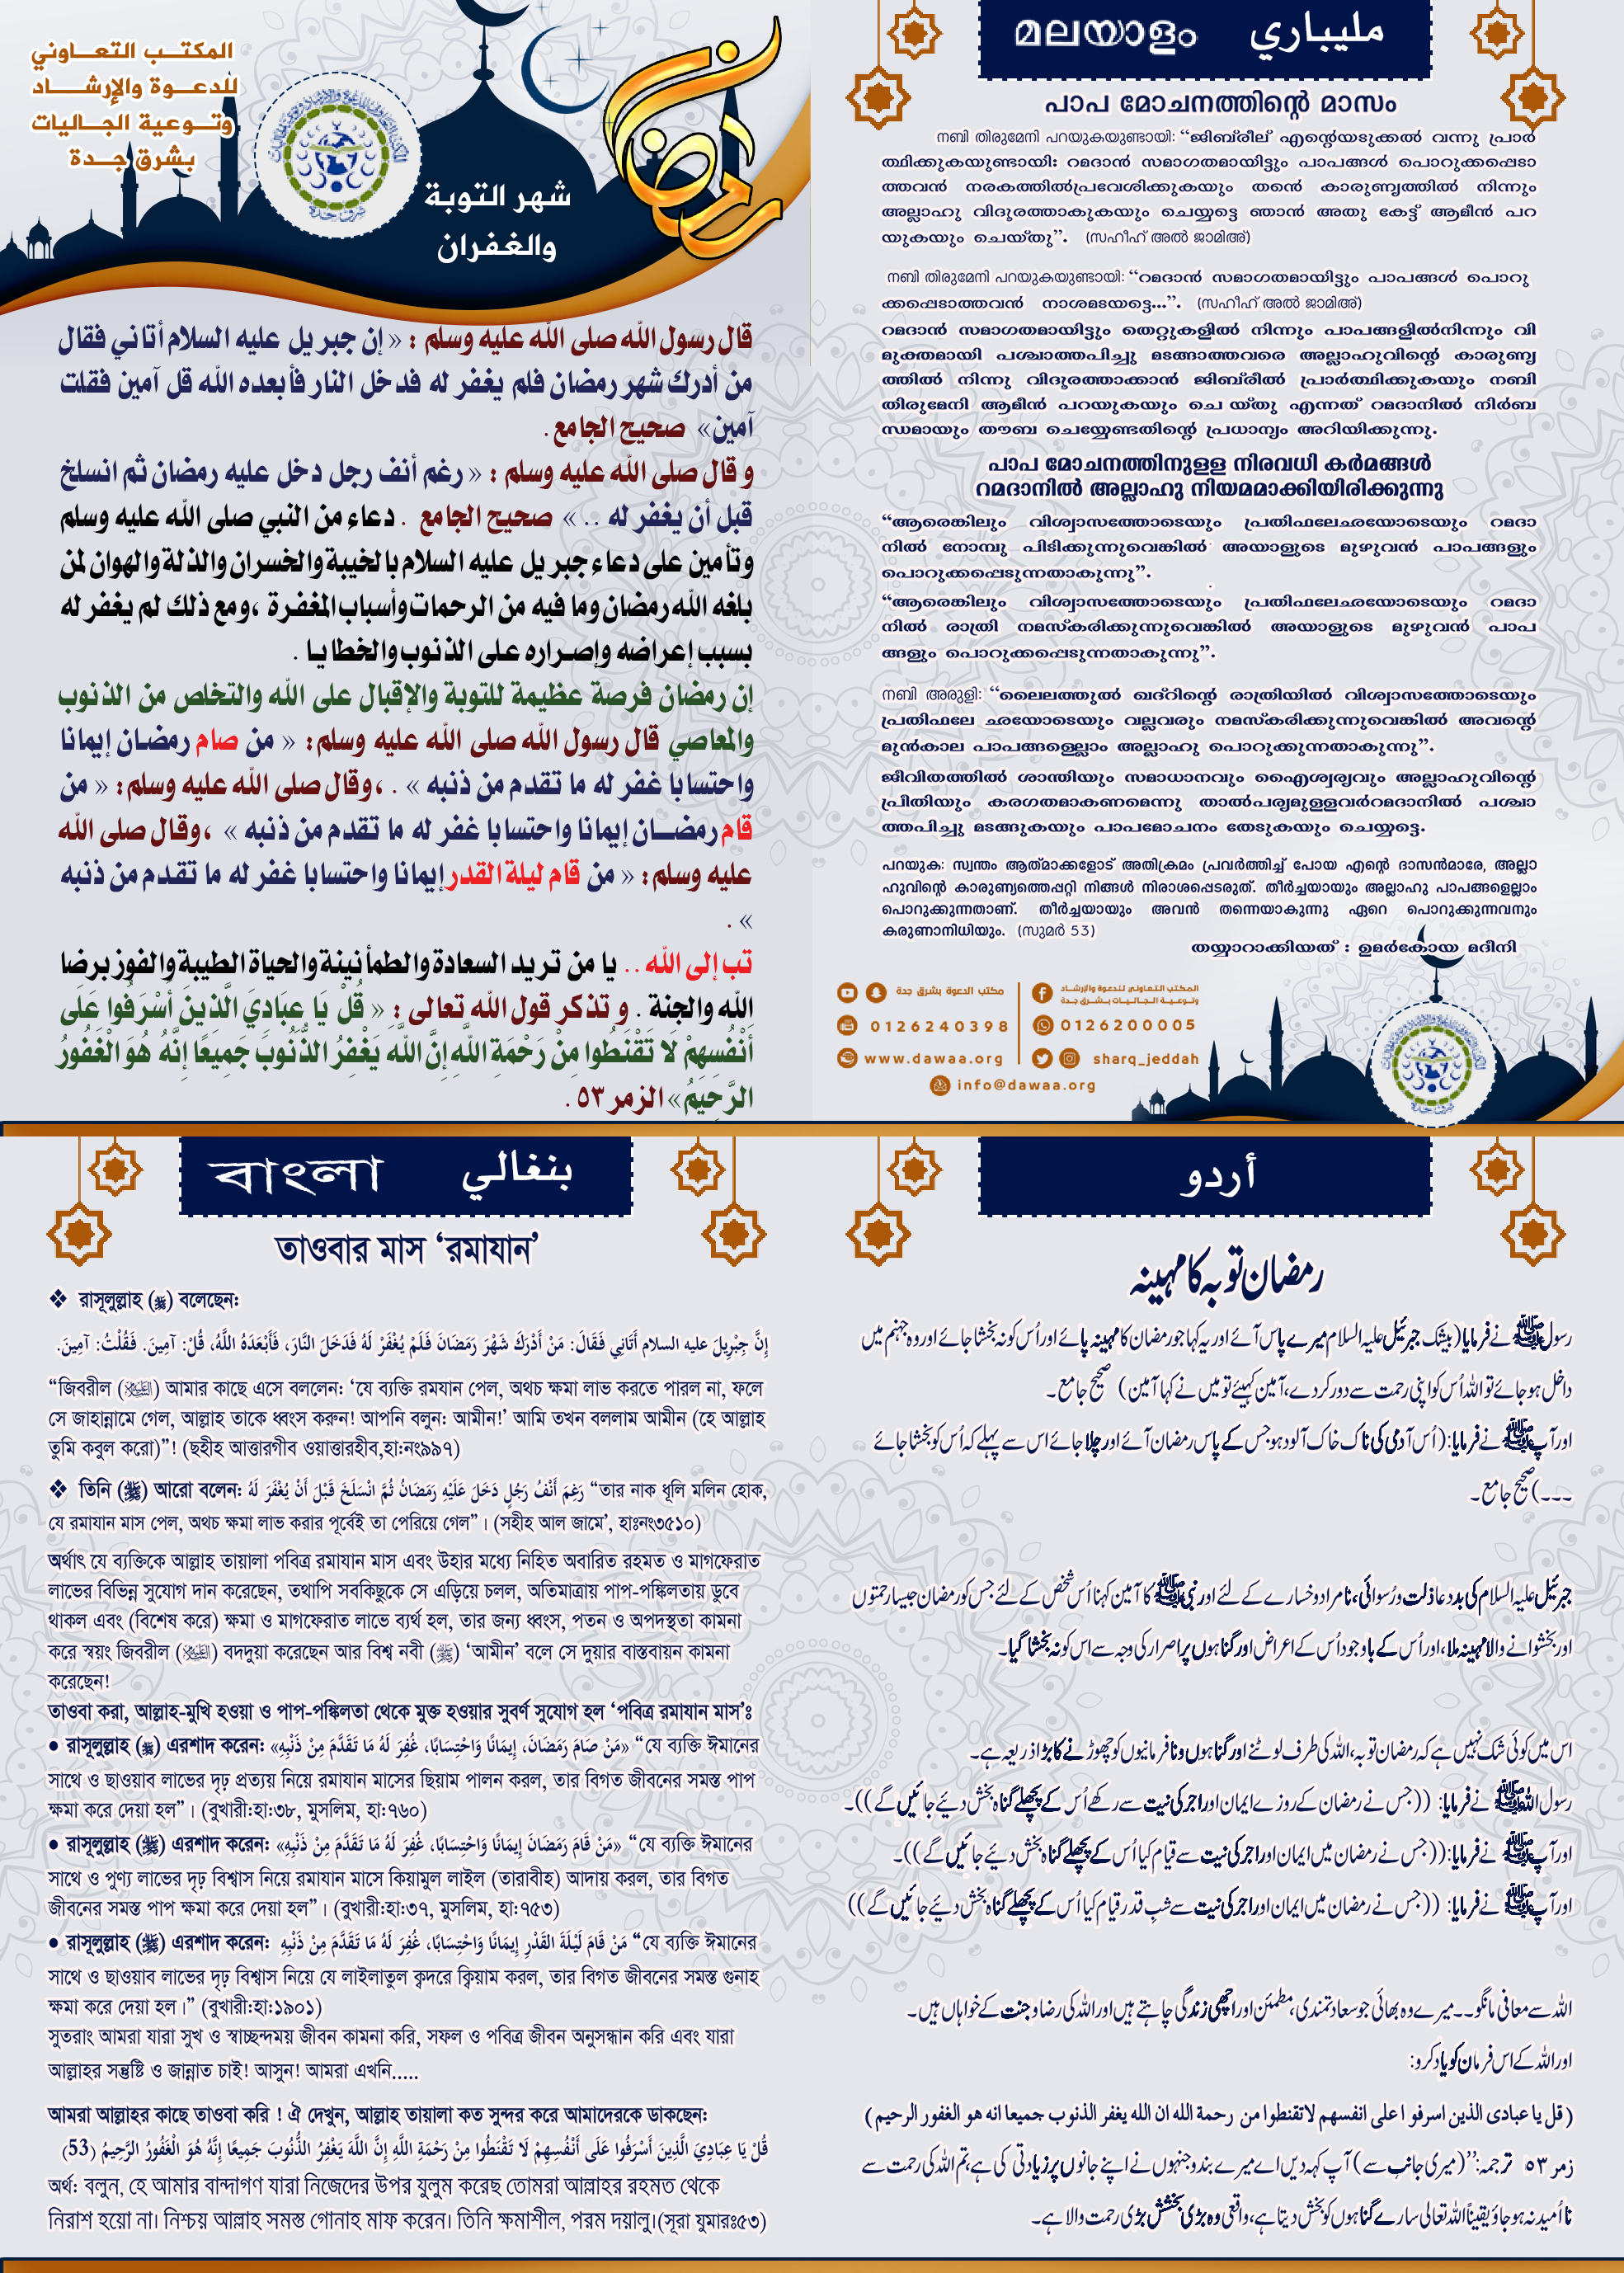 المكتب التعاوني
للدعوة والإرشاد
وتوعية الجاليات
بشرق جدة
رمضان
شهر التوبة
والغفران
قال رسول الله صلى الله عليه وسلم : « إن جبريل عليه السلام أتاني فقال
من أدرك شهر رمضان فلم يغفر له فدخل النار فأبعده الله قل آمين فقلت
آمين» صحيح الجامع .
و قال صلى الله عليه وسلم : « رغم أنف رجل دخل عليه رمضان ثم انسلخ
قبل أن يغفر له .. » صحيح الجامع . دعاء من النبي صلى الله عليه وسلم
وتأمين على دعاء جبريل عليه السلام بالخيبة والخسران والذلة والهوان لمن
بلغه الله رمضان وما فيه من الرحمات وأسباب المغفرة ،ومع ذلك لم يغفر له
بسبب إعراضه وإصراره على الذنوب والخطايا .
إن رمضان فرصة عظيمة للتوبة والإقبال على الله والتخلص من الذنوب
والمعاصي قال رسول الله صلى الله عليه وسلم: « من صام رمضان إيمانا
واحتسابا غفر له ما تقدم من ذنبه » . ،وقال صلى الله عليه وسلم: « من
قام رمضان إيمانا واحتسابا غفر له ما تقدم من ذنبه » ،وقال صلى الله
عليه وسلم: « من قام ليلة القدر إيمانا واحتسابا غفر له ما تقدم من ذنبه
» .
تب إلى الله .. يا من تريد السعادة والطمأنينة والحياة الطيبة والفوز برضا
الله والجنة . و تذكر قول الله تعالى : « قُلْ يَا عِبَادِيَ الَّذِينَ أَسْرَفُوا عَلَى
أَنْفُسِهِمْ لَا تَقْنَطُوا مِنْ رَحْمَةِ اللَّهِ إِنَّ اللَّهَ يَغْفِرُ الذُّنُوبَ جَمِيعًا إِنَّهُ هُوَ الْغَفُورُ
الرَّحِيمُ» الزمر ٥٣ .
മലയാളം مليباري
പാപ മോചനത്തിന്റെ മാസം
നബി തിരുമേനി പറയുകയുണ്ടായി: “ജിബ്‌രീല് എന്റെയടുക്കൽ വന്നു പ്രാർ
ത്ഥിക്കുകയുണ്ടായി: റമദാൻ സമാഗതമായിട്ടും പാപങ്ങൾ പൊറുക്കപ്പെടാ
ത്തവൻ നരകത്തിൽപ്രവേശിക്കുകയും തന്റെ കാരുണ്യത്തിൽ നിന്നും
അല്ലാഹു വിദൂരത്താകുകയും ചെയ്യട്ടെ ഞാൻ അതു കേട്ട് ആമീൻ പറ
യുകയും ചെയ്തു”. (സഹീഹ് അൽ ജാമിഅ്)
നബി തിരുമേനി പറയുകയുണ്ടായി: “റമദാൻ സമാഗതമായിട്ടും പാപങ്ങൾ പൊറു
ക്കപ്പെടാത്തവൻ നാശമടയട്ടെ...”. (സഹീഹ് അൽ ജാമിഅ്)
റമദാൻ സമാഗതമായിട്ടും തെറ്റുകളിൽ നിന്നും പാപങ്ങളിൽനിന്നും വി
മുക്തമായി പശ്ചാത്തപിച്ചു മടങ്ങാത്തവരെ അല്ലാഹുവിന്റെ കാരുണ്യ
ത്തിൽ നിന്നു വിദൂരത്താക്കാൻ ജിബ്‌രീൽ പ്രാർത്ഥിക്കുകയും നബി
തിരുമേനി ആമീൻ പറയുകയും ചെ യ്തു എന്നത് റമദാനിൽ നിർബ
ന്ധമായും തൗബ ചെയ്യേണ്ടതിന്റെ പ്രധാന്യം അറിയിക്കുന്നു.
പാപ മോചനത്തിനുളള നിരവധി കർമങ്ങൾ
റമദാനിൽ അല്ലാഹു നിയമമാക്കിയിരിക്കുന്നു
“ആരെങ്കിലും വിശ്വാസത്തോടെയും പ്രതിഫലേഛയോടെയും റമദാ
നിൽ നോമ്പു പിടിക്കുന്നുവെങ്കിൽ അയാളുടെ മുഴുവൻ പാപങ്ങളും
പൊറുക്കപ്പെടുന്നതാകുന്നു”.
“ആരെങ്കിലും വിശ്വാസത്തോടെയും പ്രതിഫലേഛയോടെയും റമദാ
നിൽ രാത്രി നമസ്കരിക്കുന്നുവെങ്കിൽ അയാളുടെ മുഴുവൻ പാപ
ങ്ങളും പൊറുക്കപ്പെടുന്നതാകുന്നു”.
നബി അരുളി: “ലൈലത്തുൽ ഖദ്റിന്റെ രാത്രിയിൽ വിശ്വാസത്തോടെയും
പ്രതിഫലേ ഛയോടെയും വല്ലവരും നമസ്കരിക്കുന്നുവെങ്കിൽ അവന്റെ
മുൻകാല പാപങ്ങള്ളെൊം അല്ലാഹു പൊറുക്കുന്നതാകുന്നു”.
ജീവിതത്തിൽ ശാന്തിയും സമാധാനവും ഐശ്വര്യവും അല്ലാഹുവിന്റെ
പ്രീതിയും കരഗതമാകണമെന്നു താൽപര്യമുളളവർറമദാനിൽ പശ്ചാ
ത്തപിച്ചു മടങ്ങുകയും പാപമോചനം തേടുകയും ചെയ്യട്ടെ.
പറയുക: സ്വന്തം ആത്മാക്കളോട് അതിക്രമം പ്രവർത്തിച്ച് പോയ എന്റെ ദാസൻമാരേ, അല്ലാ
ഹുവിന്റെ കാരുണ്യത്തെപ്പറ്റി നിങ്ങൾ നിരാശപ്പെടരുത്. തീർച്ചയായും അല്ലാഹു പാപങ്ങളെല്ലാം
പൊറുക്കുന്നതാണ്. തീർച്ചയായും അവൻ തന്നെയാകുന്നു ഏറെ പൊറുക്കുന്നവനും
കരുണാനിധിയും. (സുമർ 53)
തയ്യാറാക്കിയത് : ഉമർകോയ മദീനി
مكتب الدعوة بشرق جدة
المكتب التعاوني للدعوة والإرشاد
وتوعية الجاليات بشرق جدة
0126240398
0126200005
www.dawaa.org
sharq_jeddah
info@dawaa.org
বাংলা بنغالي
তাওবার মাস ‘রমাযান’
❖ রাসূলুল্লাহ (ﷺ) বলেছেন:
إِنَّ جِبْرِيلَ عليه السلام أَتَانِي فَقَالَ: مَنْ أَدْرَكَ شَهْرَ رَمَضَانَ فَلَمْ يُغْفَرْ لَهُ فَدَخَلَ النَّارَ، فَأَبْعَدَهُ اللَّهُ، قُلْ: آمِينَ. فَقُلْتُ: آمِينَ.
“জিবরীল (عليه السلام) আমার কাছে এসে বললেন: ‘যে ব্যক্তি রমযান পেল, অথচ ক্ষমা লাভ করতে পারল না, ফলে
সে জাহান্নামে গেল, আল্লাহ তাকে ধ্বংস করুন! আপনি বলুন: আমীন!’ আমি তখন বললাম আমীন (হে আল্লাহ
তুমি কবুল করো)”! (ছহীহ আত্তারগীব ওয়াত্তারহীব,হা:নং৯৯৭)
❖ তিনি (ﷺ) আরো বলেন: رَغِمَ أَنْفُ رَجُلٍ دَخَلَ عَلَيْهِ رَمَضَانُ ثُمَّ انْسَلَخَ قَبْلَ أَنْ يُغْفَرَ لَهُ “তার নাক ধূলি মলিন হোক,
যে রমাযান মাস পেল, অথচ ক্ষমা লাভ করার পূর্বেই তা পেরিয়ে গেল”। (সহীহ আল জামে’, হাঃনং৩৫১০)
অর্থাৎ যে ব্যক্তিকে আল্লাহ তায়ালা পবিত্র রমাযান মাস এবং উহার মধ্যে নিহিত অবারিত রহমত ও মাগফেরাত
লাভের বিভিন্ন সুযোগ দান করেছেন, তথাপি সবকিছুকে সে এড়িয়ে চলল, অতিমাত্রায় পাপ-পঙ্কিলতায় ডুবে
থাকল এবং (বিশেষ করে) ক্ষমা ও মাগফেরাত লাভে ব্যর্থ হল, তার জন্য ধ্বংস, পতন ও অপদস্থতা কামনা
করে স্বয়ং জিবরীল (عليه السلام) বদদুয়া করেছেন আর বিশ্ব নবী (ﷺ) ‘আমীন’ বলে সে দুয়ার বাস্তবায়ন কামনা
করেছেন!
তাওবা করা, আল্লাহ-মুখি হওয়া ও পাপ-পঙ্কিলতা থেকে মুক্ত হওয়ার সুবর্ণ সুযোগ হল ‘পবিত্র রমাযান মাস’ঃ
● রাসূলুল্লাহ (ﷺ) এরশাদ করেন: «مَنْ صَامَ رَمَضَانَ، إِيمَانًا وَاحْتِسَابًا، غُفِرَ لَهُ مَا تَقَدَّمَ مِنْ ذَنْبِهِ» “যে ব্যক্তি ঈমানের
সাথে ও ছাওয়াব লাভের দৃঢ় প্রত্যয় নিয়ে রমাযান মাসের ছিয়াম পালন করল, তার বিগত জীবনের সমস্ত পাপ
ক্ষমা করে দেয়া হল”। (বুখারী:হা:৩৮, মুসলিম, হা:৭৬০)
● রাসূলুল্লাহ (ﷺ) এরশাদ করেন: «مَنْ قَامَ رَمَضَانَ إِيمَانًا وَاحْتِسَابًا، غُفِرَ لَهُ مَا تَقَدَّمَ مِنْ ذَنْبِهِ» “যে ব্যক্তি ঈমানের
সাথে ও পুণ্য লাভের দৃঢ় বিশ্বাস নিয়ে রমাযান মাসে কিয়ামুল লাইল (তারাবীহ) আদায় করল, তার বিগত
জীবনের সমস্ত পাপ ক্ষমা করে দেয়া হল”। (বুখারী:হা:৩৭, মুসলিম, হা:৭৫৩)
● রাসূলুল্লাহ (ﷺ) এরশাদ করেন: مَنْ قَامَ لَيْلَةَ القَدْرِ إِيمَانًا وَاحْتِسَابًا، غُفِرَ لَهُ مَا تَقَدَّمَ مِنْ ذَنْبِهِ “যে ব্যক্তি ঈমানের
সাথে ও ছাওয়াব লাভের দৃঢ় বিশ্বাস নিয়ে যে লাইলাতুল ক্বদরে ক্বিয়াম করল, তার বিগত জীবনের সমস্ত গুনাহ
ক্ষমা করে দেয়া হল।” (বুখারী:হা:১৯০১)
সুতরাং আমরা যারা সুখ ও স্বাচ্ছন্দময় জীবন কামনা করি, সফল ও পবিত্র জীবন অনুসন্ধান করি এবং যারা
আল্লাহর সন্তুষ্টি ও জান্নাত চাই! আসুন! আমরা এখনি.....
আমরা আল্লাহর কাছে তাওবা করি ! ঐ দেখুন, আল্লাহ তায়ালা কত সুন্দর করে আমাদেরকে ডাকছেন:
قُلْ يَا عِبَادِيَ الَّذِينَ أَسْرَفُوا عَلَى أَنْفُسِهِمْ لَا تَقْنَطُوا مِنْ رَحْمَةِ اللَّهِ إِنَّ اللَّهَ يَغْفِرُ الذُّنُوبَ جَمِيعًا إِنَّهُ هُوَ الْغَفُورُ الرَّحِيمُ (53)
অর্থ: বলুন, হে আমার বান্দাগণ যারা নিজেদের উপর যুলুম করেছ তোমরা আল্লাহর রহমত থেকে
নিরাশ হয়ো না। নিশ্চয় আল্লাহ সমস্ত গোনাহ মাফ করেন। তিনি ক্ষমাশীল, পরম দয়ালু।(সূরা যুমারঃ৫৩)
أردو
رمضان توبہ کا مہینہ
رسول ﷺ نے فرمایا (بیشک جبرئیل علیہ السلام میرے پاس آئے اور یہ کہا جو رمضان کا مہینہ پائے اور اُس کو نہ بخشا جائے اور وہ جہنم میں
داخل ہو جائے تو اللہ اُس کو اپنی رحمت سے دور کر دے، آمین کہیئے تو میں نے کہا آمین) صحیح جامع۔
اور آپ ﷺ نے فرمایا: (اُس آدمی کی ناک خاک آلود ہو جس کے پاس رمضان آئے اور چلا جائے اس سے پہلے کہ اُس کو بخشا جائے
۔۔۔) صحیح جامع۔
جبرئیل علیہ السلام کی بددعا ذلت و رُسوائی، نامراد و خسارے کے لئے اور نبی ﷺ کا آمین کہنا اُس شخص کے لئے جس کو رمضان جیسا رحمتوں
اور بخشوانے والا مہینہ ملا، اور اُس کے باوجود اُس کے اعراض اور گناہوں پر اصرار کی وجہ سے اس کو نہ بخشا گیا۔
اس میں کوئی شک نہیں ہے کہ رمضان توبہ، اللہ کی طرف لوٹنے اور گناہوں و نافرمانیوں کو چھوڑنے کا بڑا ذریعہ ہے۔
رسول اللہ ﷺ نے فرمایا: ((جس نے رمضان کے روزے ایمان اور اجر کی نیت سے رکھے اُس کے پچھلے گناہ بخش دیئے جائیں گے))۔
اور آپ ﷺ نے فرمایا: ((جس نے رمضان میں ایمان اور اجر کی نیت سے قیام کیا اُس کے پچھلے گناہ بخش دیئے جائیں گے))۔
اور آپ ﷺ نے فرمایا: ((جس نے رمضان میں ایمان اور اجر کی نیت سے شبِ قدر قیام کیا اُس کے پچھلے گناہ بخش دیئے جائیں گے))
اللہ سے معافی مانگو۔۔ میرے وہ بھائی جو سعادتمندی، مطمئن اور اچھی زندگی چاہتے ہیں اور اللہ کی رضا و جنت کے خواہاں ہیں۔
اور اللہ کے اس فرمان کو یاد کرو:
(قل يا عبادی الذين اسرفو ا علی انفسهم لاتقنطوا من رحمة الله ان الله يغفر الذنوب جميعا انه هو الغفور الرحيم)
زمر ٥٣ ترجمہ: ”(میری جانب سے) آپ کہہ دیں اے میرے بندو جنہوں نے اپنے جانوں پر زیادتی کی ہے، تم اللہ کی رحمت سے
نااُمید نہ ہو جاؤ یقیناً اللہ تعالی سارے گناہوں کو بخش دیتا ہے، واقعی وہ بڑی بخشش بڑی رحمت والا ہے۔